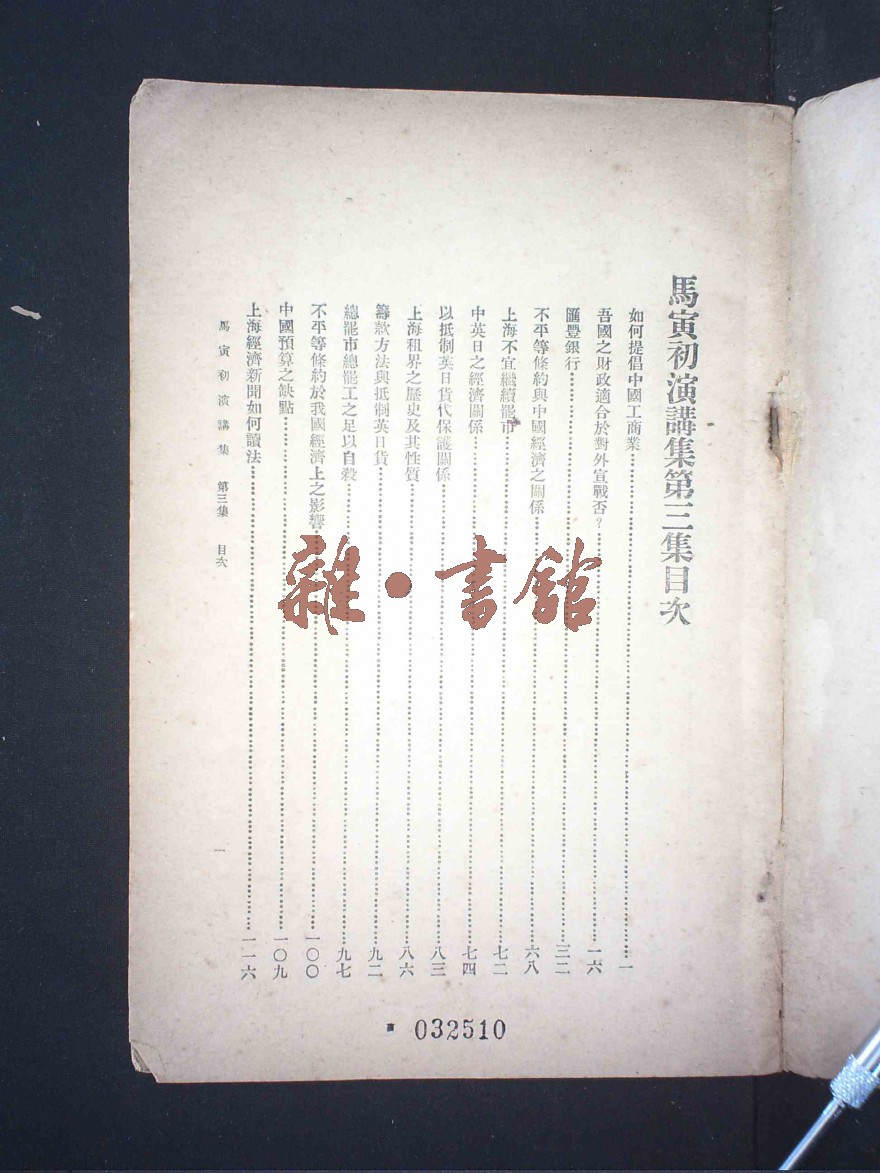 馬寅初演講集第三集目次
如何提倡中國工商業……一
吾國之財政適合於對外宣戰否？……一六
匯豐銀行……三二
不平等條約與中國經濟之關係……六八
上海不宜繼續罷市……七二
中英日之經濟關係……七四
以抵制英日貨代保護關係……八三
上海租界之歷史及其性質……八六
籌款方法與抵制英日貨……九二
總罷市總罷工之足以自殺……九七
不平等條約於我國經濟上之影響……一〇〇
中國預算之缺點……一〇九
上海經濟新聞如何讀法……一一六
馬寅初演講集 第三集 目次
一
雜·書館
032510